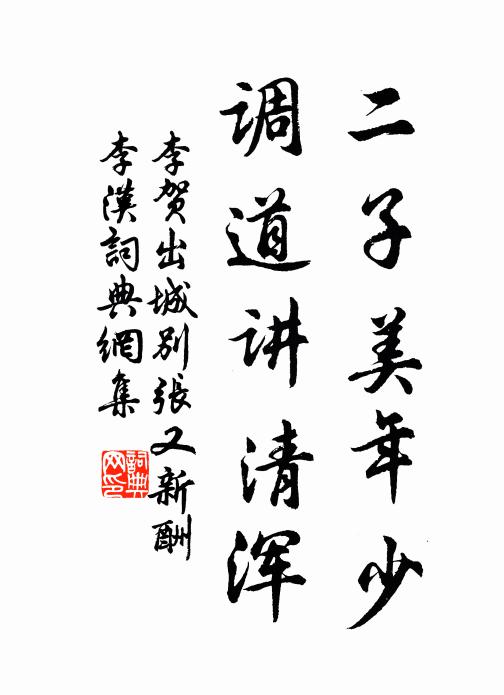 二子美年少
调道讲清浑
李贺出城別張又新酬
李漢詞典網集
詞典网印